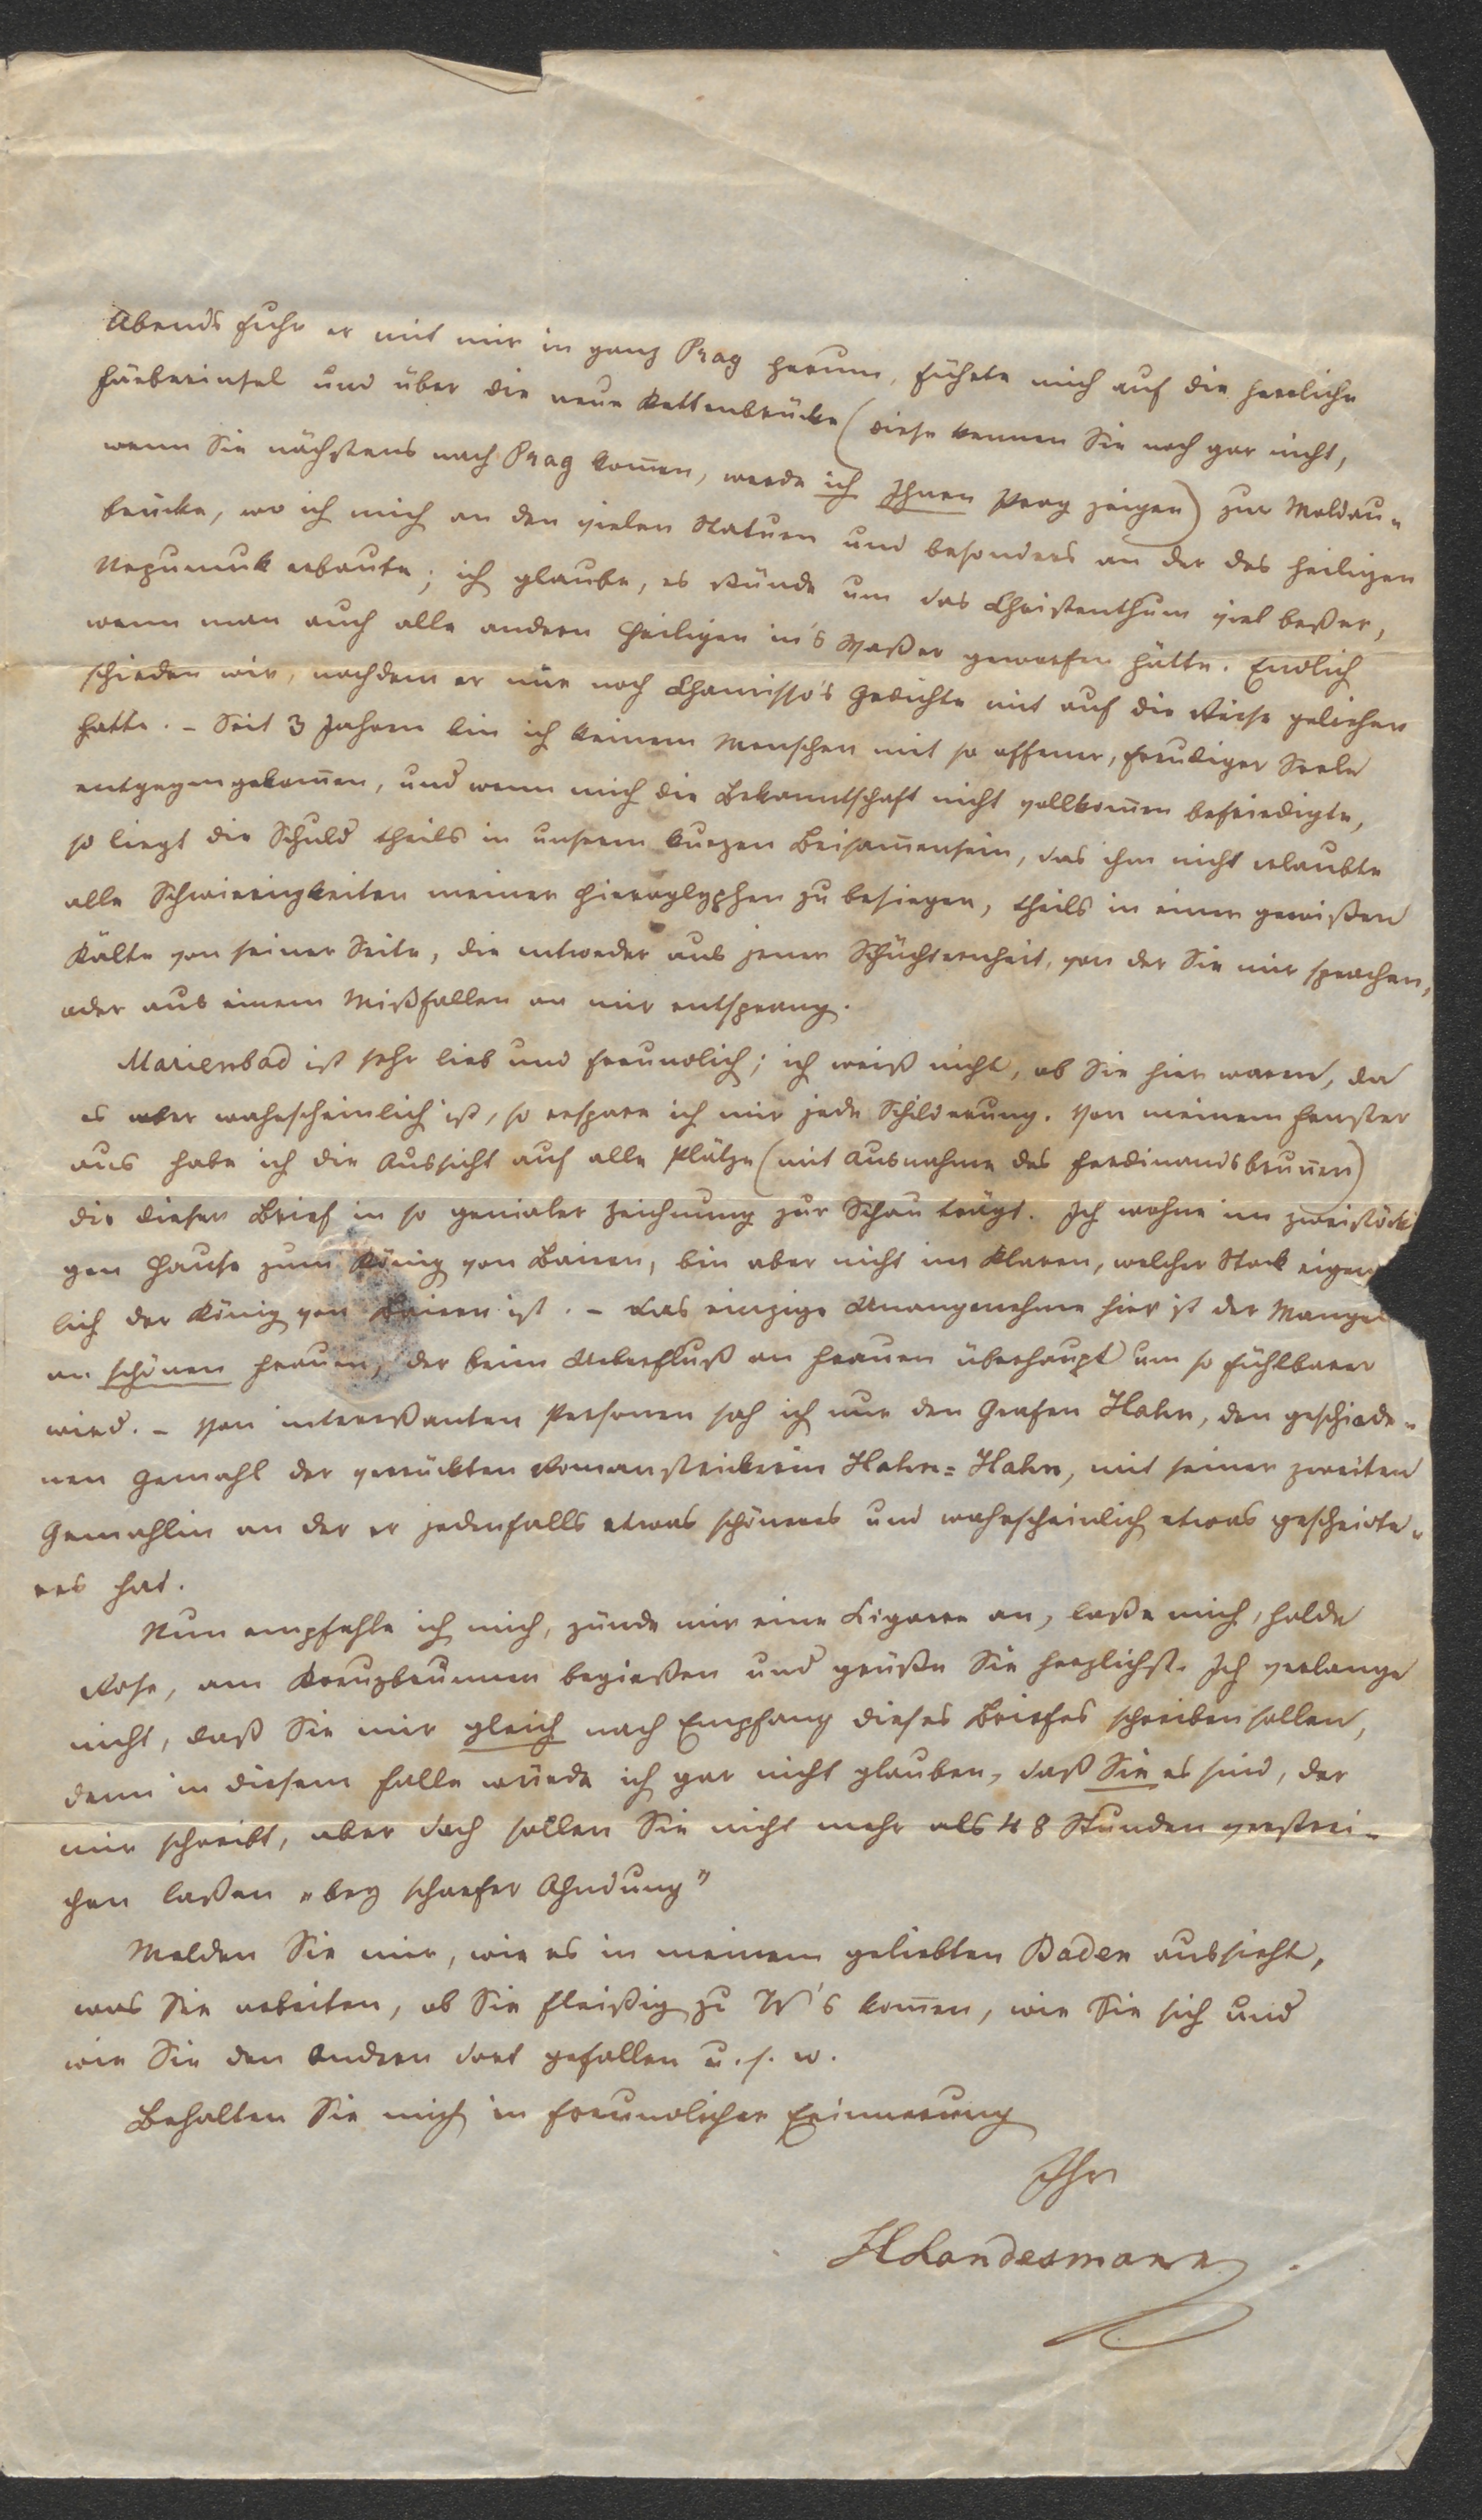 Abends fuhr er mit mir in ganz Prag herum, führte mich auf die herrliche
Färberinsel und über die neue Kettenbrücke (diese kennen Sie noch gar nicht,
wenn Sie nächstens nach Prag kom̅en, werde ich Ihnen Prag zeigen) zur Moldau-
brücke, wo ich mich an den vielen Statuen und besonders an der des heiligen
Nepumuk erbaute; ich glaube, es stünde um das Christenthum viel beßer,
wenn man auch alle andern Heiligen in's Waßer geworfen hätte. Endlich
schieden wir, nachdem er mir noch Chamisso's Gedichte mit auf die Reise geliehen
hatte. – Seit 3 Jahren bin ich keinem Menschen mit so offener, freudiger Seele
entgegengekom̅en, und wenn mich die Bekanntschaft nicht vollkom̅en befriedigte,
so liegt die Schuld theils in unserm kurzen Beisam̅ensein, das ihm nicht erlaubte
alle Schwierigkeiten meiner Hieroglyphen zu besiegen, theils in einer gewißen
Kälte von seiner Seite, die entweder aus jener Schüchternheit, von der Sie mir sprachen,
oder aus einem Mißfallen an mir entsprang.
Marienbad ist sehr lieb und freundlich; ich weiß nicht, ob Sie hier waren, da
es aber wahrscheinlich ist, so erspare ich mir jede Schilderung. Von meinem Fenster
aus habe ich die Aussicht auf alle Plätze (mit Ausnahme des Ferdinandsbrun̅en)
die dieser Brief in so genialer Zeichnung zur Schau trägt. Ich wohne im zweistöcki
gen Hause zum König von Baiern, bin aber nicht im Klaren, welcher Stock eigen
lich der König von Baiern ist. – Das einzige Unangenehme hier ist der Mangel
an schönen Frauen, der beim Ueberfluß an Frauen überhaupt um so fühlbarer
wird. – Von intereßanten Personen sah ich nur den Grafen Hahn, den geschiede-
nen Gemahl der verrückten Romanstrickerin Hahn=Hahn, mit seiner zweiten
Gemahlin an der er jedenfalls etwas schöneres und wahrscheinlich etwas gescheidte-
res hat.
Nun empfehle ich mich, zünde mir eine Cigarre an, laße mich, holde
Rose, am Kreuzbrunnen begießen und grüße Sie herzlichst. Ich verlange
nicht, daß Sie mir gleich nach Empfang dieses Briefes schreiben sollen,
denn in diesem Falle würde ich gar nicht glauben, daß Sie es sind, der
mir schreibt, aber doch sollen Sie nicht mehr als 48 Stunden verstrei-
chen laßen „bey scharfer Ahndung"
Melden Sie mir, wie es in meinem geliebten Baden aussieht,
was Sie arbeiten, ob Sie fleißig zu W's kom̅en, wie Sie sich und
wie Sie den Andern dort gefallen u. s. w.
Behalten Sie mich in freundlicher Erinnerung
Ihr
HLandesmann